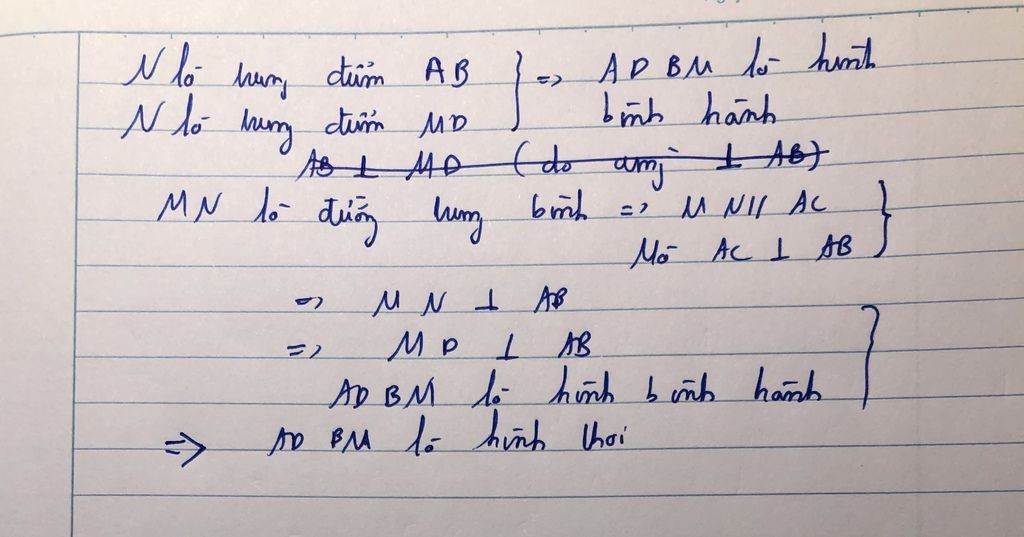 N là trung điểm AB } => ADBM là hình
N là trung điểm MD bình hành
AB ⊥ MD (do cmị ⊥ AB)
MN là đường trung bình => MN // AC }
Mà AC ⊥ AB
=> MN ⊥ AB
=> MD ⊥ AB }
ADBM là hình bình hành
=> ADBM là hình thoi